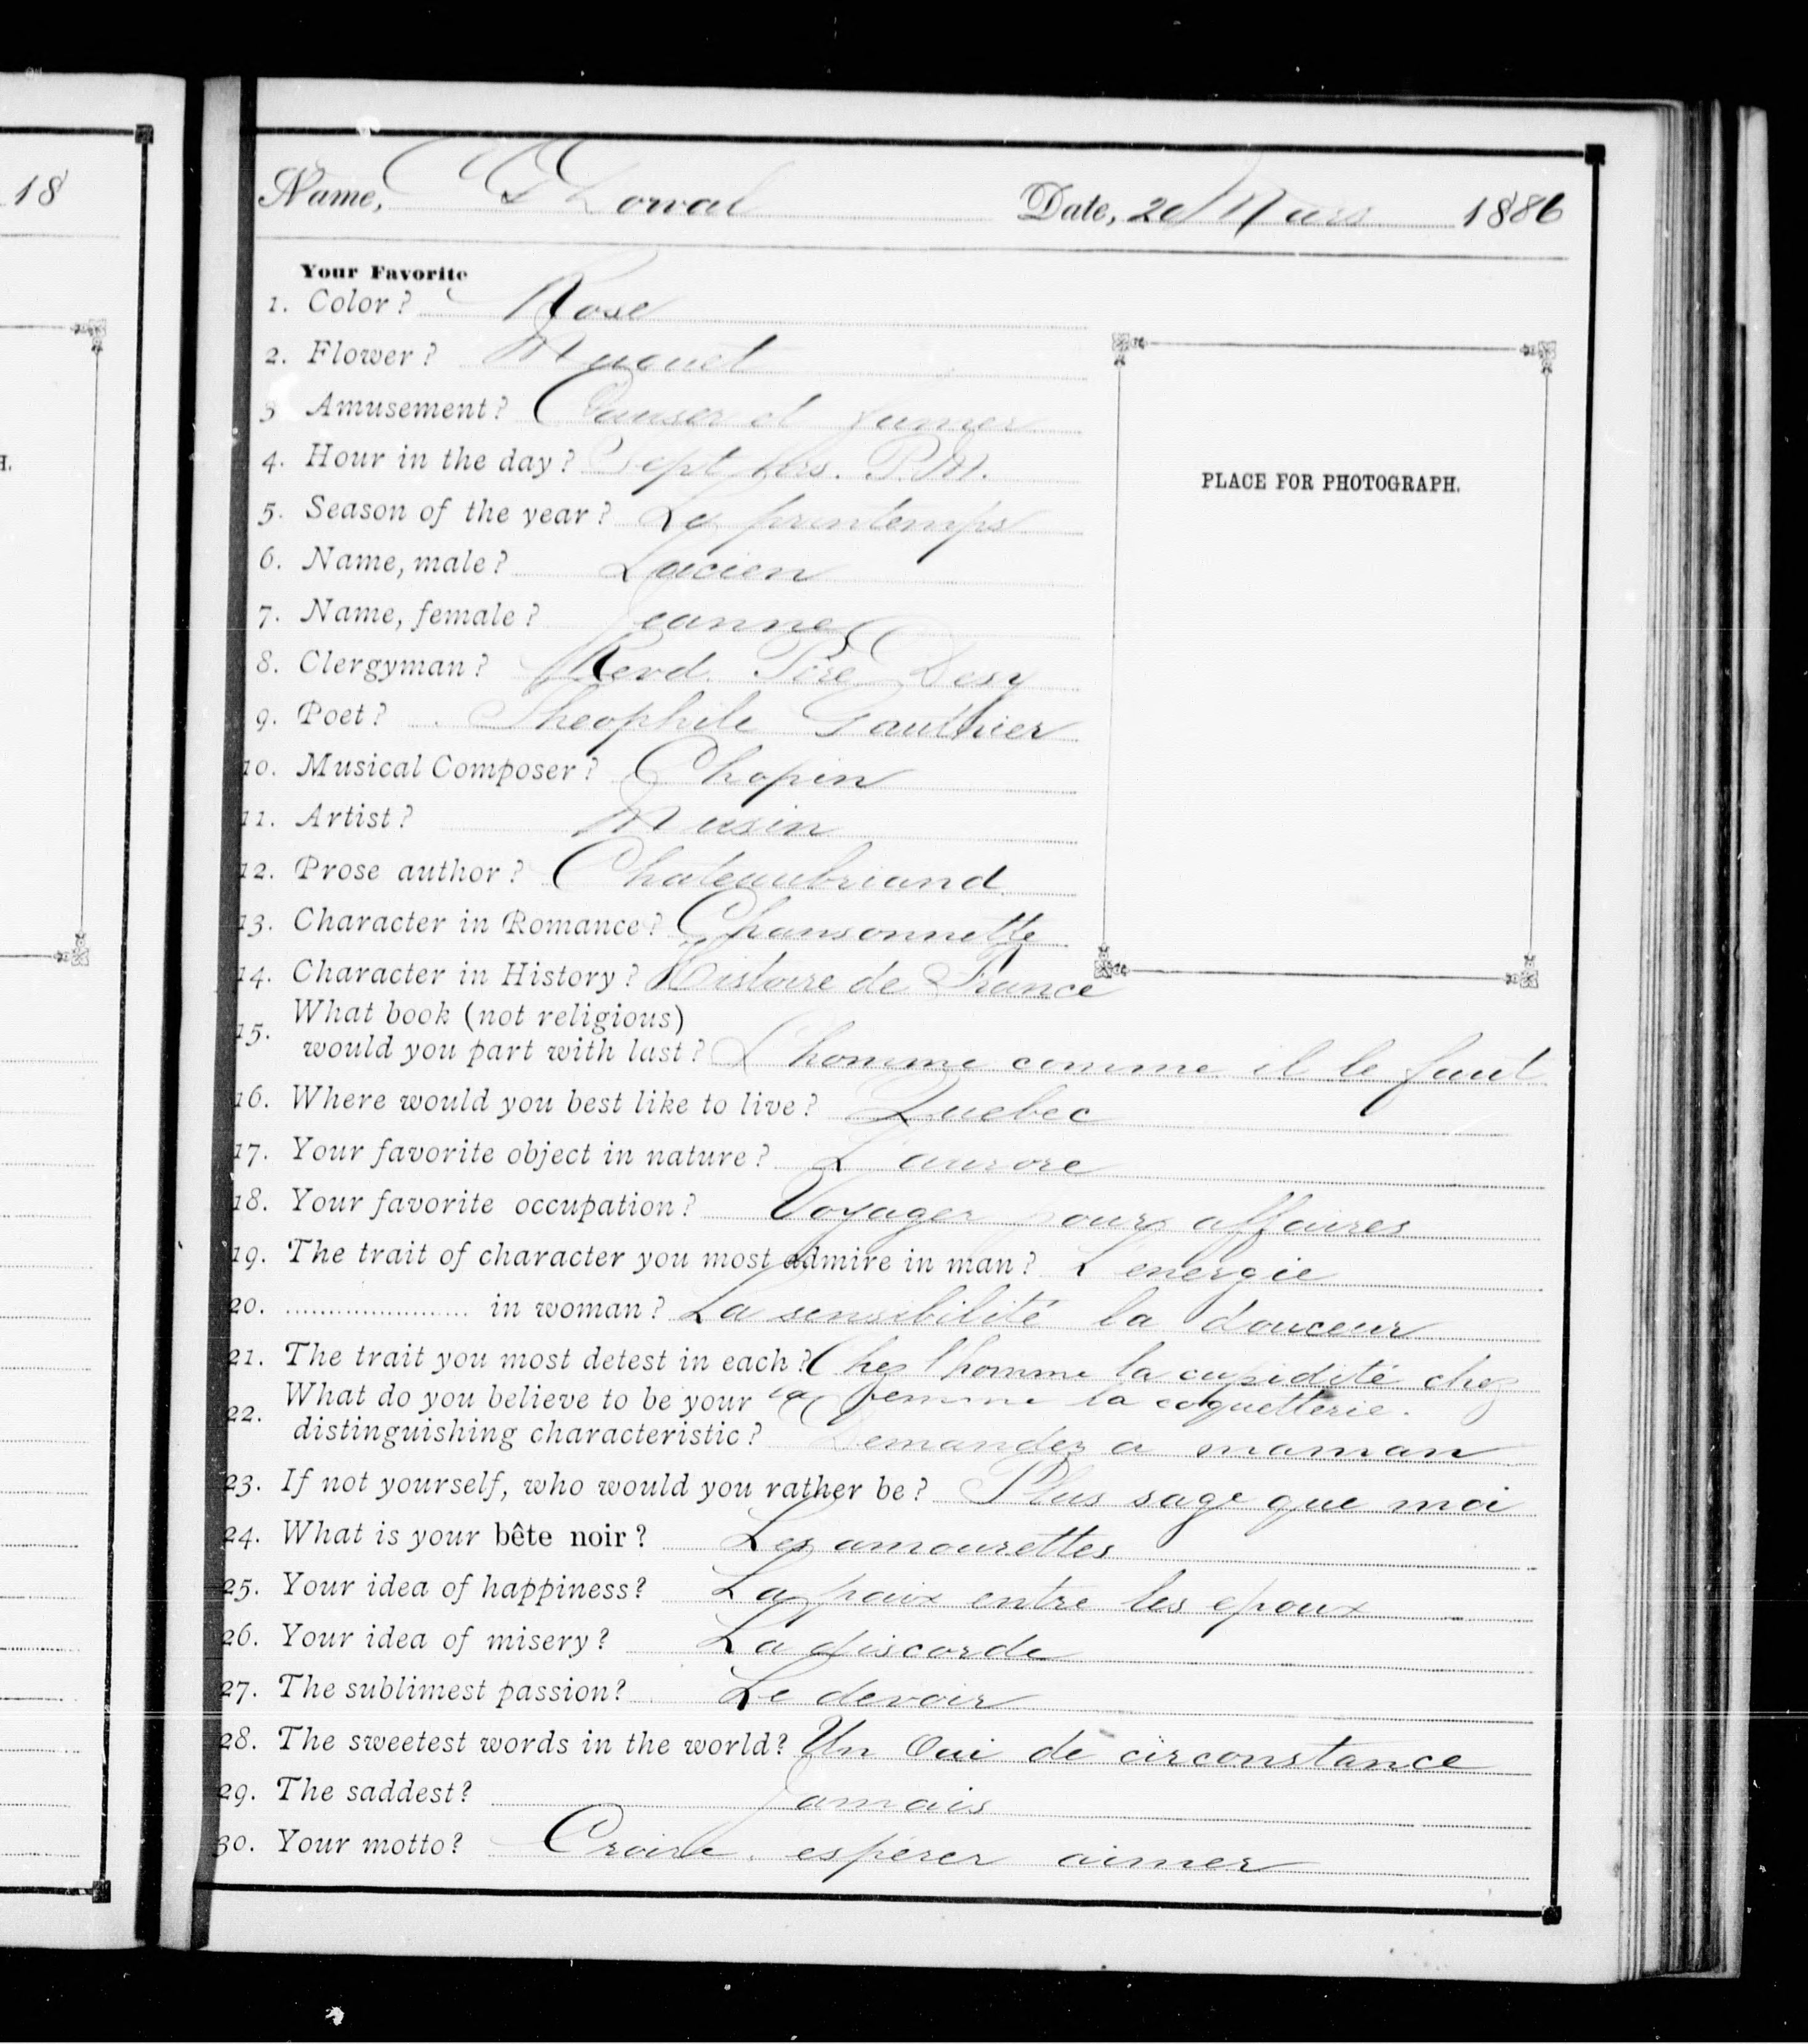 18
H.
Name, Date, 20 Mars 1886
Your Favorite
1. Color? Rose
2. Flower? Muguet
3 Amusement? Danser et fumer
4. Hour in the day? Sept hrs. P.M.
5. Season of the year? Le printemps
6. Name, male? Lucien
7. Name, female? Jeanne
8. Clergyman? Revd. Père Desy
9. Poet? Theophile Gauthier
10. Musical Composer? Chopin
11. Artist? Musin
12. Prose author? Chateaubriand
13. Character in Romance? Chansonnette
14. Character in History? Histoire de France
15. What book (not religious)
would you part with last? L'homme comme il le faut
16. Where would you best like to live? Quebec
17. Your favorite object in nature? L'aurore
18. Your favorite occupation? Voyager pour affaires
19. The trait of character you most admire in man? L'energie
20. ...................... in woman? La sensibilité la douceur
21. The trait you most detest in each? Chez l'homme la cupidité chez
la femme la coquetterie.
22. What do you believe to be your
distinguishing characteristic? Demandez a maman
23. If not yourself, who would you rather be? Plus sage que moi
24. What is your bête noir? Les amourettes
25. Your idea of happiness? La paix entre les epoux
26. Your idea of misery? La discorde
27. The sublimest passion? Le devoir
28. The sweetest words in the world? Un Oui de circonstance
29. The saddest? Jamais
30. Your motto? Croire. espérer aimer
PLACE FOR PHOTOGRAPH.